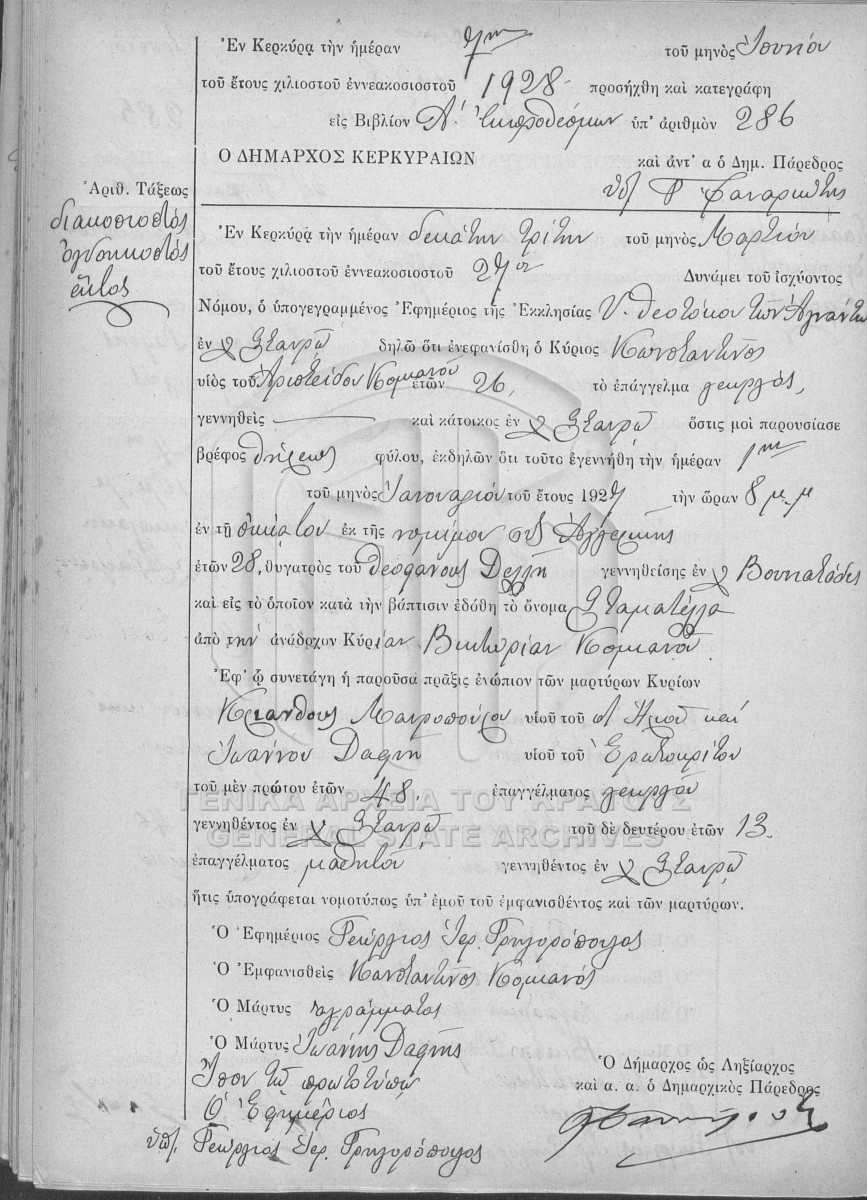 Ἐν Κερκύρᾳ τὴν ἡμέραν 7ην τοῦ μηνὸς Ἰουνίου
τοῦ ἔτους χιλιοστοῦ ἐννεακοσιοστοῦ 1928 προσήχθη καὶ κατεγράφη
εἰς Βιβλίον Α΄. Ἐκπροθέσμων ὑπ' ἀριθμὸν 286
Ο ΔΗΜΑΡΧΟΣ ΚΕΡΚΥΡΑΙΩΝ καὶ ἀντ' α ὁ Δημ. Πάρεδρος
Ἀριθ. Τάξεως
διακοσιοστὸς
ὀγδοηκοστὸς
ἕκτος
Ἐν Κερκύρᾳ τὴν ἡμέραν δεκάτην τρίτην τοῦ μηνὸς Μαρτίου
τοῦ ἔτους χιλιοστοῦ ἐννεακοσιοστοῦ 27ου Δυνάμει τοῦ ἰσχύοντος
Νόμου, ὁ ὑπογεγραμμένος Ἐφημέριος τῆς Ἐκκλησίας Υ. Θεοτόκου τῶν
ἐν χ Σταυρῷ δηλῶ ὅτι ἐνεφανίσθη ὁ Κύριος Κωνσταντῖνος
υἱὸς τοῦ Ἀριστείδου Κομιανοῦ ἐτῶν 26, τὸ ἐπάγγελμα γεωργός,
γεννηθεὶς καὶ κάτοικος ἐν χ Σταυρῷ ὅστις μοι παρουσίασε
βρέφος θήλεως φύλου, ἐκδηλῶν ὅτι τοῦτο ἐγεννήθη τὴν ἡμέραν 1ην
τοῦ μηνὸς Ἰανουαρίου τοῦ ἔτους 1927 τὴν ὥραν 8 μ.μ
ἐν τῇ οἰκίᾳ του ἐκ τῆς νομίμου συζ Ἀγγερικῆς
ἐτῶν 28, θυγατρὸς τοῦ Θεοφάνους Δελλῆ γεννηθείσης ἐν χ Βουνιατάδες
καὶ εἰς τὸ ὁποῖον κατὰ τὴν βάπτισιν ἐδόθη τὸ ὄνομα Σταματέλλα
ἀπὸ τὴν ἀνάδοχον Κυρίαν Βικτωρίαν Κομιανοῦ
Ἐφ' ᾧ συνετάγη ἡ παροῦσα πρᾶξις ἐνώπιον τῶν μαρτύρων Κυρίων
Μαυροπούλου υἱοῦ τοῦ καὶ
Ἰωάννου Δαφνῆ υἱοῦ τοῦ Ἐρωτοκρίτου
τοῦ μὲν πρώτου ἐτῶν 48, ἐπαγγέλματος γεωργοῦ
γεννηθέντος ἐν χ Σταυρῷ τοῦ δὲ δευτέρου ἐτῶν 13
ἐπαγγέλματος μαθητοῦ γεννηθέντος ἐν χ Σταυρῷ
ἥτις ὑπογράφεται νομοτύπως ὑπ' ἐμοῦ τοῦ ἐμφανισθέντος καὶ τῶν μαρτύρων.
Ὁ Ἐφημέριος Γεώργιος Ἱερ. Γρηγορόπουλος
Ὁ Ἐμφανισθεὶς Κωνσταντῖνος Κομιανός
Ὁ Μάρτυς ἀγράμματος
Ὁ Μάρτυς Ἰωάννης Δαφνῆς
Ἴσον τῷ πρωτοτύπῳ
Ὁ Ἐφημέριος
ὑπ. Γεώργιος Ἱερ. Γρηγορόπουλος
Ὁ Δήμαρχος ὡς Ληξίαρχος
καὶ α. α. ὁ Δημαρχικὸς Πάρεδρος
ΓΕΝΙΚΑ ΑΡΧΕΙΑ ΤΟΥ ΚΡΑΤΟΥΣ
GENERAL STATE ARCHIVES